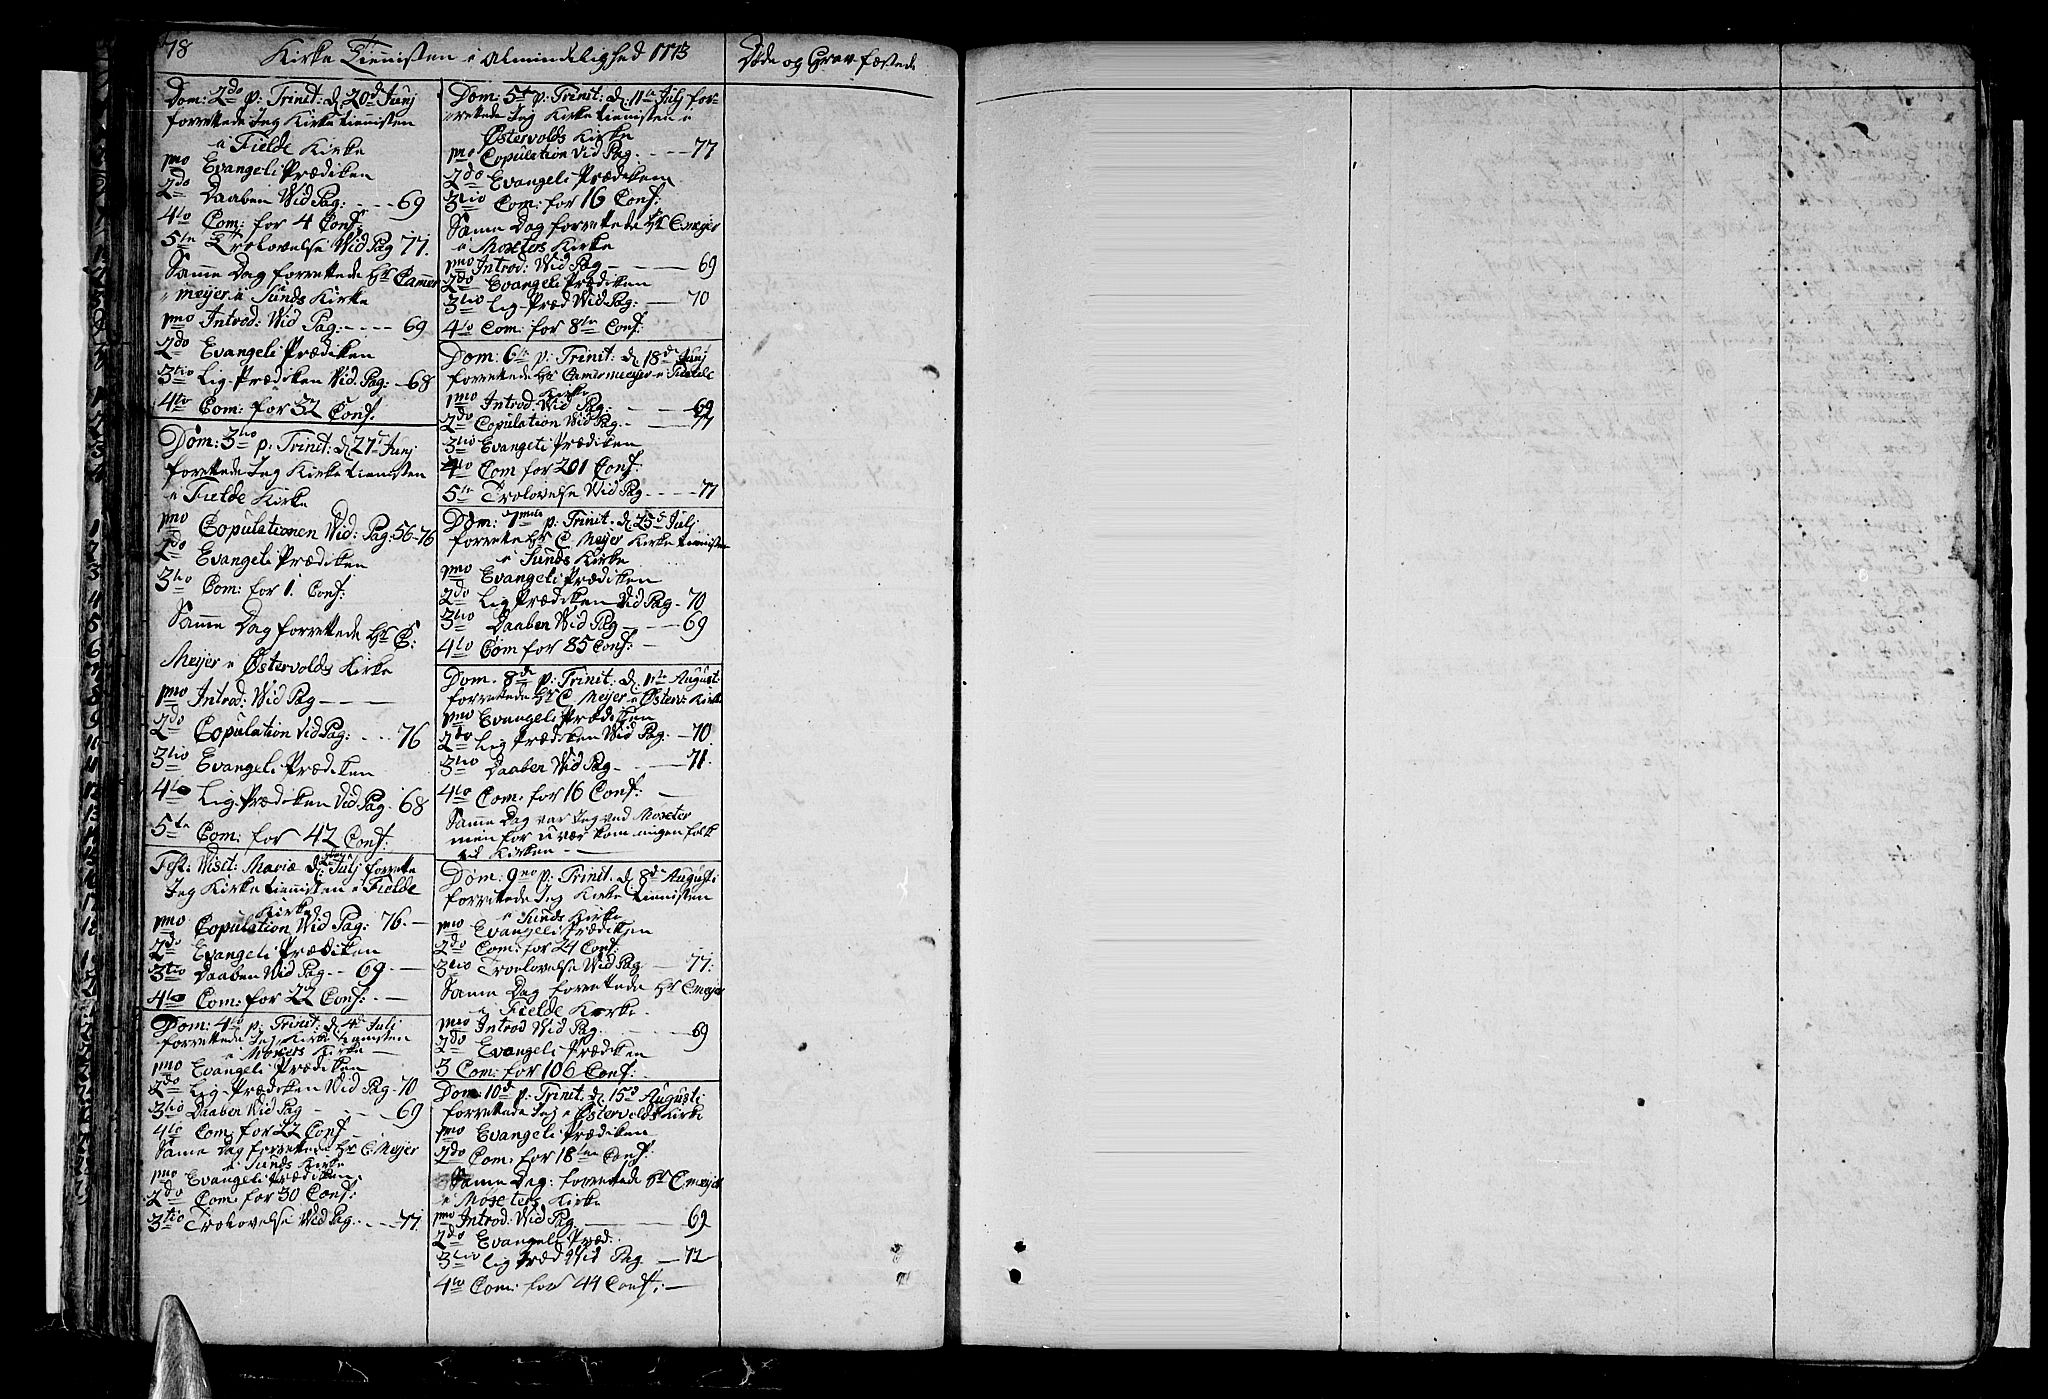 78
Kirke Tiennisten i Almindelighed 1773
Døde og Grav-fæstede
Dom: 2do p: Trinit: d. 20d Junj
forrettede Jeg Kirke tiennisten
i Fielde Kirke
pmo Evangeli Prædiken
2do Daaben Vid Pag: - - - 69
4to Com: for 4 Conf:
5te Trolovelse Vid Pag 77.
Samme Dag forrettede Hr Camer
meyer i Sunds Kirke
pmo Introd: Vid Pag: - - - - 69
2do Evangeli Prædiken
3tio Lig-Prædiken Vid. Pag: - 68
4to Com: for 32 Conf.
Dom: 3tio p: Trinit: d. 27d Junj
forrettede Jeg Kirke tiennisten
i Fielde Kirke
pmo Copulationen Vid: Pag: 56-76
2do Evangeli Prædiken
3tio Com: for 1. Conf:
Samme Dag forrettede Hr C:
Meijer i Østervolds Kirke
pmo Introd: Vid Pag - - -
2do Copulation Vid Pag: - - - 76
3tio Evangeli Prædiken
4to Lig-Prædiken Vid Pag. 68
5te Com: for 42 Conf:
Fest: Visit: Mariæ d. Julj forrette
Jeg Kirke tiennisten i Fielde
Kirke
pmo Copulation Vid Pag: 76. -
2do Evangeli Prædiken
3tio Daaben Vid Pag - - 69. -
4to Com: for 22 Conf: -
Dom: 4to p: Trinit: d. 4d Juli
forrettede Jeg Kirke tienisten
i Møxters Kirke
pmo Evangeli Prædiken
2do Lig-Prædiken Vid Pag - 70
3tio Daaben Vid Pag - - - 69
4to Com: for 22 Conf
Same Dag forrettede Hr C: Meijer
i Sunds Kirke
pmo Evangeli Prædiken
2do Com: for 30 Conf:
3tio Trolovelse Vid Pag. - - - 77
Dom: 5te p: Trinit: d: 11te Julj for-
rettede Jeg Kirke tiennisten i
Østervolds Kirke
pmo Copulation Vid Pag. - - - 77
2do Evangeli Prædiken
3tio Com: for 16 Conf:
Samme Dag forrettede Hr C. meijer
i Moxters Kirke
pmo Introd: Vid Pag - - - 69
2do Evangeli Prædiken
3tio Lig-Præd Vid Pag: - 70
4to Com: for 8te Conf:
Dom: 6te p: Trinit: d. 18d Junj
forrettede Hr Camermeijer i Fielde
Kirke
pmo Introd: Vid Pag: - - - 69
2do Copulation Vid Pag. - - 77
3tio Evangeli Prædiken
4to Com for 201 Conf:
5te Trolovelse Vid Pag - - - - 77
Dom: 7me p: Trinit. d. 25d Julj
forrette Hr C. Meijer Kirke tiennisten
i Sunds Kirke
pmo Evangeli Prædiken
2do Lig Prædiken Vid Pag - 70
3tio Daaben Vid Pag - - - 69
4to Com for 85 Conf: -
Dom. 8d p: Trinit: d. 1te August:
forrettede Hr C Meijer i Østerv: Kirke
pmo Evangeli Prædiken
2do Lig Prædiken Vid Pag. - 70
3tio Daaben Vid Pag - - - 71.
4to Com: for 16 Conf: -
Samme Dag var Jeg ved Moxster
men for uvær kom ingen folk
til Kirken - -
Dom: 9no p: Trinit. d. 8de Augusti
forrettede Jeg Kirke tiennisten
i Sunds Kirke
pmo Evangeli Prædiken
2do Com: for 24 Conf:
3tio Trolovelse Vid Pag - - 77:
Samme Dag forrettede Hr C. meijer
i Fielde Kirke.
pmo Introd Vid Pag. - - - - 69
2do Evangeli Prædiken
3 Com: for 106 Conf:
Dom: 10d p: Trinit. d. 15d Augusti
forrettede Jeg i Østervolds Kirke
pmo Evangeli Prædiken
2do Com: for 18ten Conf:
Samme Dag: forrettede Hr C. meijer
i Møxters Kirke
pmo Introd: Vid Pag. - - - 69
2do Evangeli Præd:
3tio Lig Præd Vid Pag - 72
4to Com: for 44 Conf: -